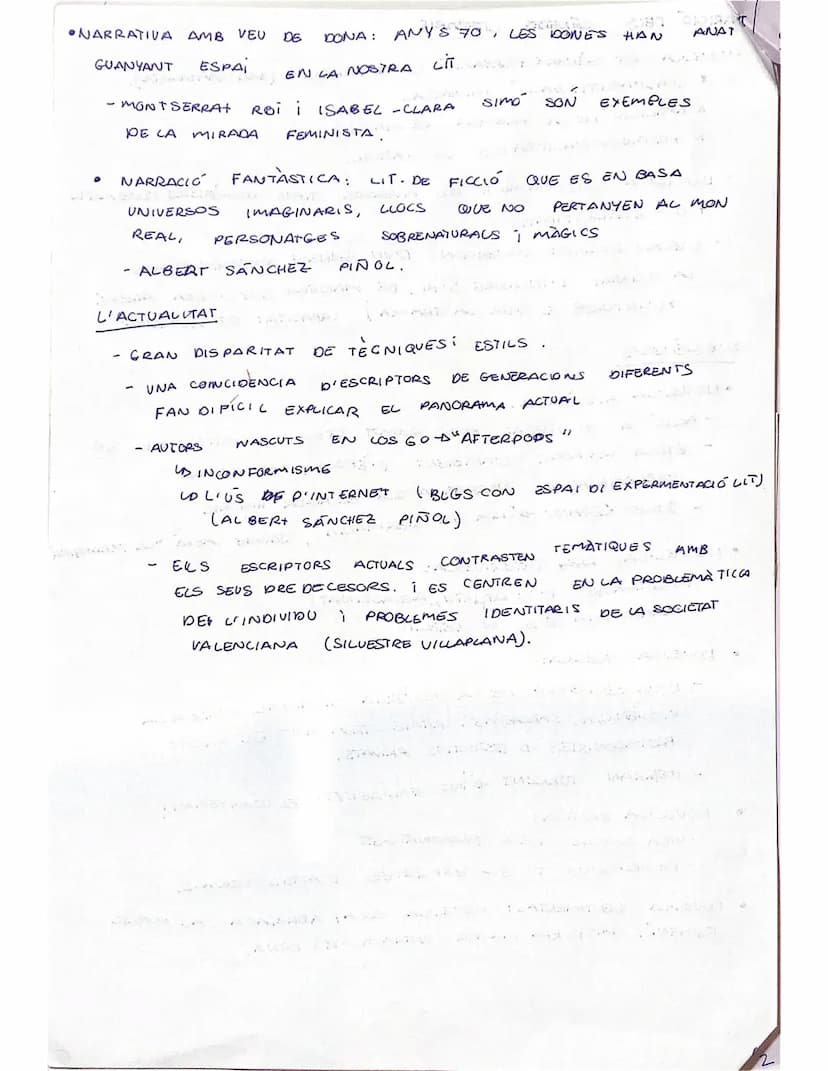 • NARRATIVA AMB VEU DE DONA: ANYS 70, LES DONES HAN ANAT
GUANYANT ESPAI EN LA NOSTRA LIT
- MONTSERRAT ROI i ISABEL-CLARA SIMÓ SÓN EXEMPLES
DE LA MIRADA FEMINISTA.
• NARRACIÓ FANTÀSTICA: LIT. DE FICCIÓ QUE ES EN BASA
UNIVERSOS IMAGINARIS, LLOCS QUE NO PERTANYEN AL MON
REAL, PERSONATGES SOBRENATURALS i MÀGICS
- ALBERT SÁNCHEZ PIÑOL.
L'ACTUALITAT
- GRAN DISPARITAT DE TÈCNIQUES i ESTILS.
- UNA COINCIDÈNCIA D'ESCRIPTORS DE GENERACIONS DIFERENTS
FAN DIFÍCIL EXPLICAR EL PANORAMA ACTUAL
- AUTORS NASCUTS EN LOS 60 → "AFTERPOPS"
↳ INCONFORMISME
↳ L'ÚS DE D'INTERNET (BLGS CON ESPAI DI EXPERMENTACIÓ LIT)
(ALBERT SÁNCHEZ PIÑOL)
- ELS ESCRIPTORS ACTUALS CONTRASTEN TEMÀTIQUES AMB
ELS SEUS PREDECESORS. i ES CENTREN EN LA PROBLEMÀTICA
DE L'INDIVIDU i PROBLEMES IDENTITARIS DE LA SOCIETAT
VALENCIANA (SILVESTRE VILLAPLANA).
2